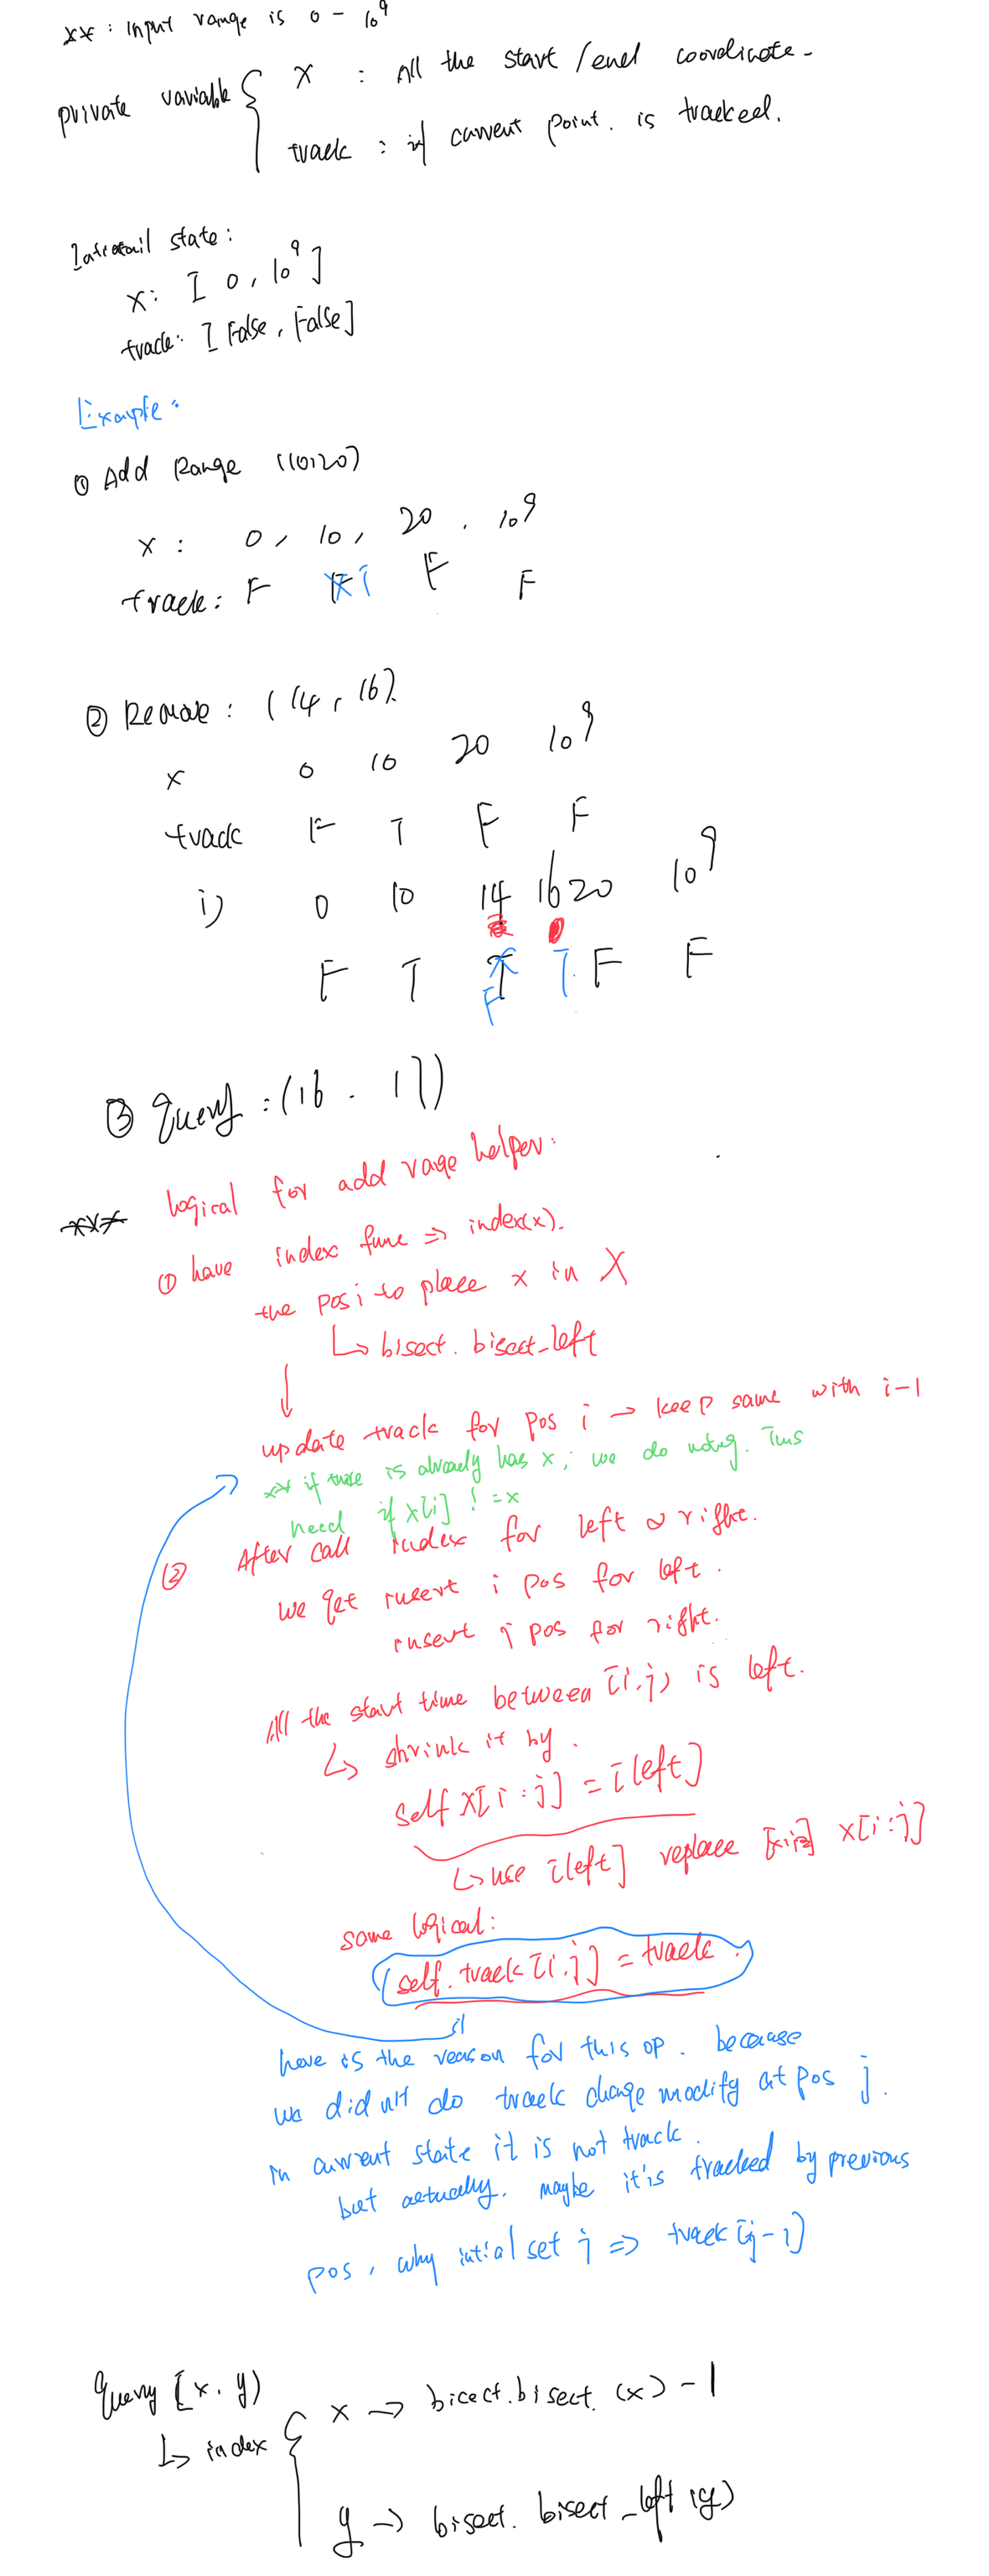 ** : Input range is 0 - 10^9
private variable { X : All the start / end coordinate.
track : if current point. is tracked.
state:
X: [ 0, 10^9 ]
track: [ False, False ]
Example:
① Add Range (10,20)
X : 0, 10, 20, 10^9
track: F T F F
② Remove: (14, 16)
X 0 10 20 10^9
track F T F F
i) 0 10 14 16 20 10^9
F T T T F F
F
③ Query: (16. 17)
*** logical for add rage helper:
① have index func => index(x).
the pos i to place x in X
↳ bisect. bisect_left
↓
update track for pos i → keep same with i-1
** if there is already has x; we do noting. This
need if x[i] != x
② After call index for left & right.
we get insert i pos for left.
insert j pos for right.
All the start time between [i.j) is left.
↳ shrink it by.
self X[i : j] = [left]
↳ use [left] replace X[i:j]
same logical:
self. track [i.j] = track.
here is the reason for this op. because
we did not do track change modify at pos j.
in current state it is not track.
but actually. maybe it's tracked by previous
pos, why intial set j => track[j-1]
Query [x. y)
↳ index { x → bicect.bisect. (x) - 1
y → bisect. bisect_left (y)